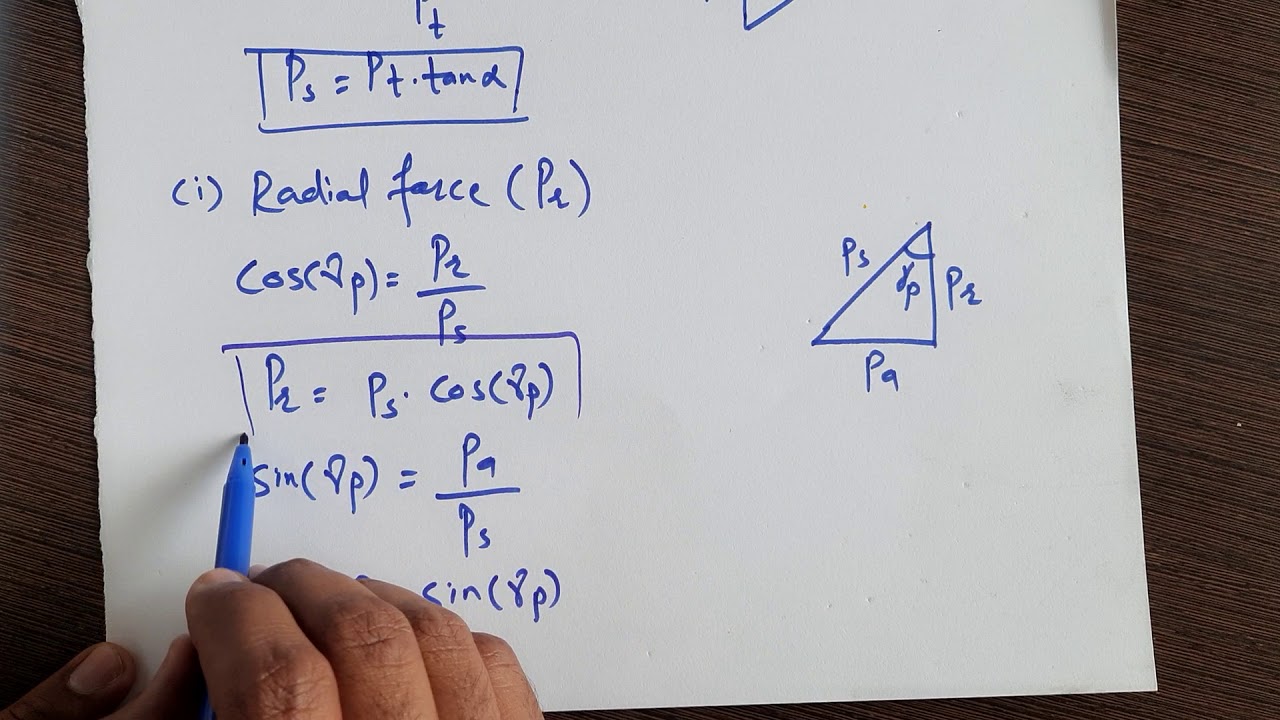 Pt
Ps = Pt . tan α
(i) Radial force (Pr)
cos(γp) = Pr / Ps
Pr = Ps . cos(γp)
sin(γp) = Pa / Ps
sin(γp)
Ps
γp
Pr
Pa